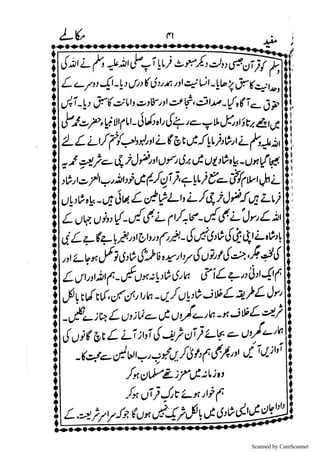 مفید ۳۱ مکالمے
وسلم کو قرآن جیسی دولت دیکر مبعوث فرمایا آپ صلی اللہ علیہ وسلم نے اللہ کی
وحدانیت کا سبق پڑھایا۔ انسانیت اور ہمدردی کا درس دیا۔ ایک دوسرے کے
حقوق سے آگاہ کیا۔ صداقت، شجاعت اور سخاوت وامانت کا سبق دیا۔ آپس
میں اچھے برتاؤ اور میل ملاپ سے رہنے کی راہ دکھائی۔ امام الانبیاء حضرت محمد صلی
اللہ علیہ وسلم نے ارشاد فرمایا کہ میں ناچ گانے اور لہو ولعب کو ختم کرانے کے لئے
بھیجا گیا ہوں۔ بیاہ شادیوں میں بری رسموں اور فضول خرچی سے شریعت محمدیہ
نے اہل اسلام کو سختی سے منع فرمایا ہے، قرآن کریم میں خود اللہ رب العزت ارشاد
فرماتے ہیں کہ فضول خرچی کرنے والے شیاطین کے بھائی ہیں۔ بیاہ شادیاں
اللہ کے رسول نے بھی کیں۔ صحابہ کرام نے بھی کیں۔ کیا دونوں جہاں کے
بادشاہ نے اپنی بیٹی کی شادی نہیں کی۔ بغیر رسم ورواج اور بغیر باجے گاجے کے نبی
کی لخت جگر، جنت کی عورتوں کی سردار سیدہ فاطمہ کی شادی تو مکمل ہو جائے اور
ہم ایک ادنیٰ درجے کے امتی ہماری شادیاں نہ ہو سکیں۔ ہم اللہ اور اس کے
رسول کے طریقہ کے خلاف شادیاں کریں۔ ہمارا رہن سہن، کمانا، کھانا بالکل
شریعت کے خلاف ہو۔ ہمارے گھروں میں سے نمازوں کے جنازے نکلیں۔
ہمارے گھروں سے بجائے قرآن شریف کی آواز آنے کے ناچ گانوں کی
آوازیں آئیں اور پھر بھی ہم دعویٰ کریں محبوب رب العالمین سے محبت کا۔
وہ زمانہ میں معزز تھے مسلماں ہوکر
ہم خوار ہوئے تارک قرآں ہوکر
دادا جان میں ایسی شادی میں بالکل شریک نہیں ہوں گا جو کہ سراسر شریعت کے
Scanned by CamScanner